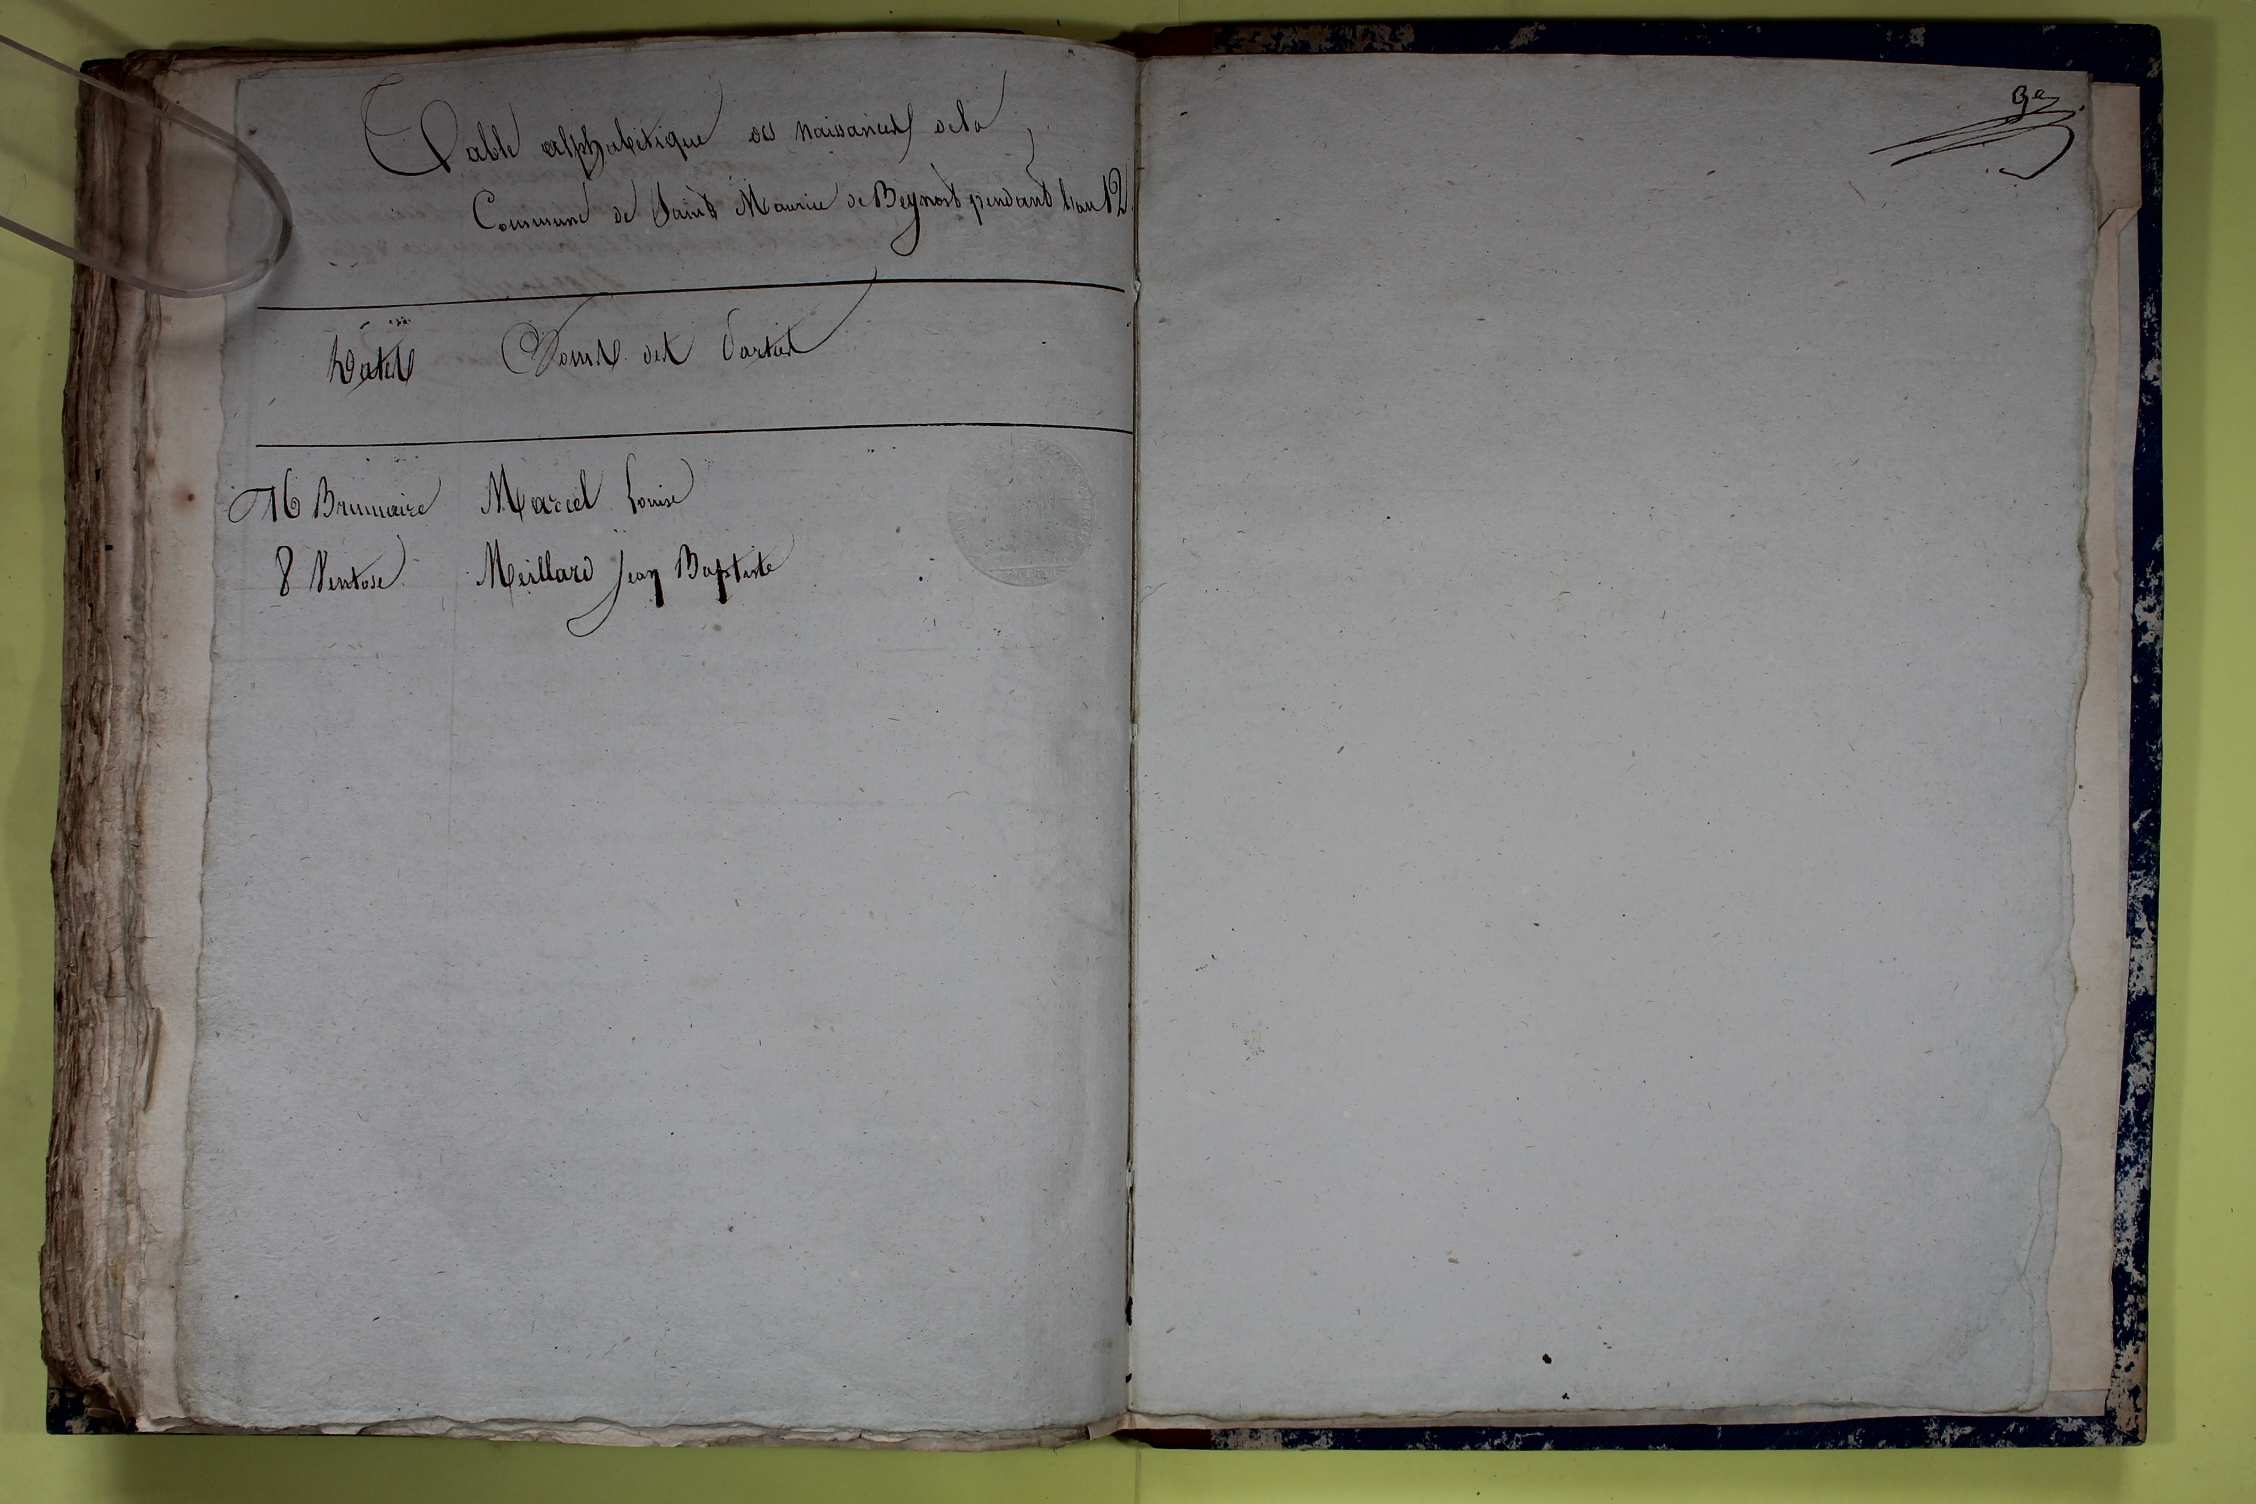 Table alphabétique des naissances de la
Commune de Saint Maurice de Beynost pendant l'an 12
Dates Noms des Parties
16 Brumaire Marcel Louise
8 Ventose Meillard Jean Baptiste